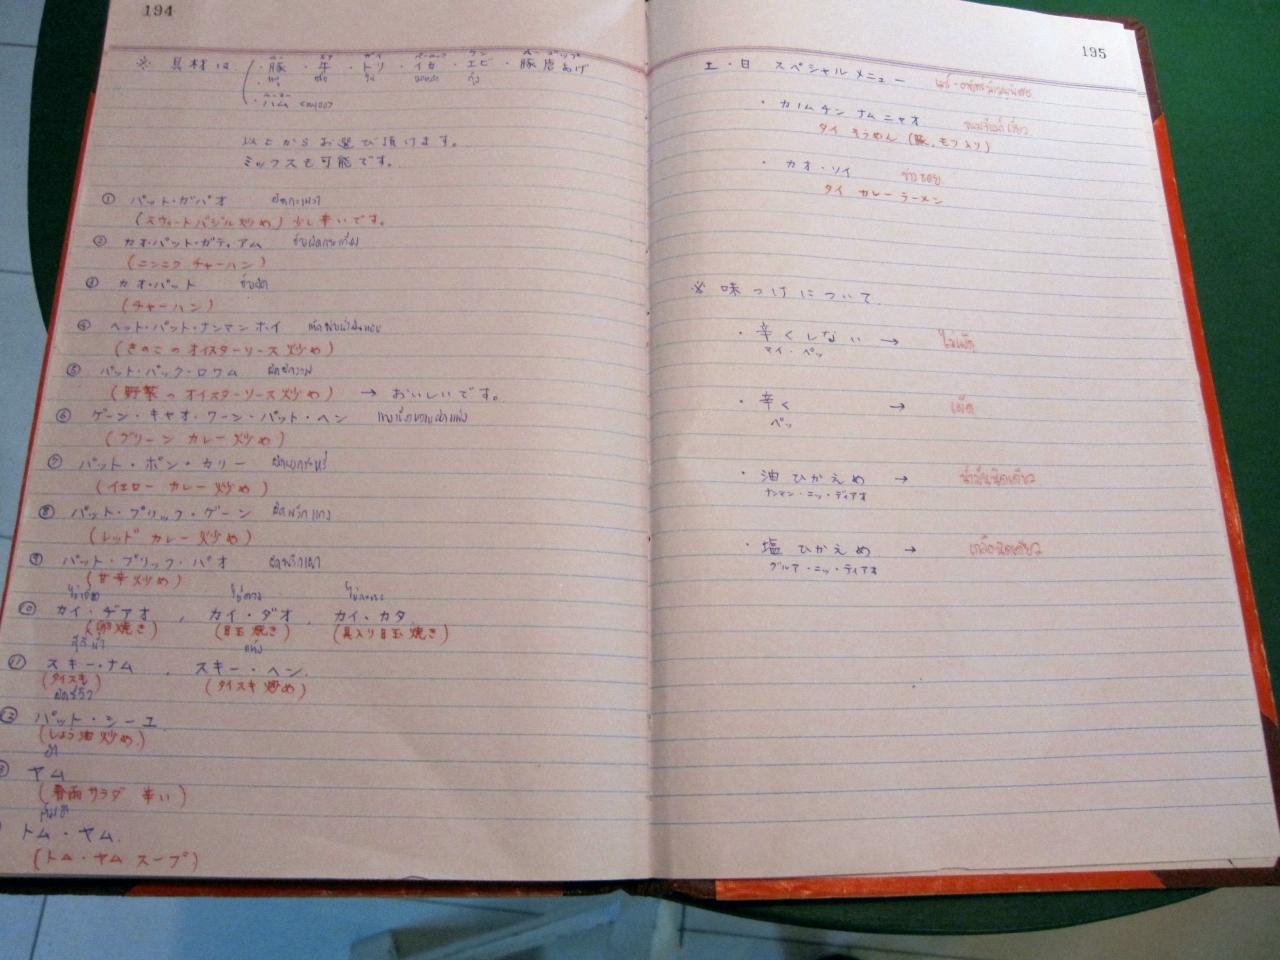 194
※ 具材は ・豚 ・牛 ・トリ イカ ・エビ ・豚唐あげ
หมู เนื้อ ไก่ กุ้ง
・ハム
以上からお選び頂けます。
ミックスも可能です。
① パット・ガパオ ผัดกะเพรา
(スウィートバジル炒め) 少し辛いです。
② カオ・パット・ガティアム ข้าวผัดกระเทียม
(ニンニク チャーハン)
③ カオ・パット ข้าวผัด
(チャーハン)
④ ヘット・パット・ナンマンホイ เห็ดผัดน้ำมันหอย
(きのこのオイスターソース炒め)
⑤ パット・パック・ロワム ผัดผักรวม
(野菜のオイスターソース炒め) → おいしいです。
⑥ ゲーン・キャオ・ワーン・パット・ヘン แกงเขียวหวานผัดแห้ง
(グリーン カレー炒め)
⑦ パット・ポン・カリー ผัดผงกะหรี่
(イエロー カレー炒め)
⑧ パット・プリック・ゲーン ผัดพริกแกง
(レッド カレー炒め)
⑨ パット・プリック・パオ ผัดพริกเผา
(甘辛炒め)
ไข่เจียว ไข่ดาว ไข่กระทะ
⑩ カイ・ヂアオ , カイ・ダオ , カイ・カタ
(卵焼き) (目玉焼き) (具入り目玉焼き)
สุกี้น้ำ แห้ง
⑪ スキー・ナム , スキー・ヘン
(タイスキ) (タイスキ炒め)
ผัดซีอิ๊ว
⑫ パット・シーユ
(しょう油炒め)
ยำ
ヤム
(春雨サラダ 辛い)
ต้มยำ
トム・ヤム
(トム・ヤムスープ)
195
土・日 スペシャルメニュー เสาร์-อาทิตย์เมนูพิเศษ
・カノムチン ナムニャオ ขนมจีนน้ำเงี้ยว
タイ そうめん (豚、モツ入り)
・カオ・ソイ ข้าวซอย
タイ カレーラーメン
※ 味つけについて
・辛くしない → ไม่เผ็ด
マイ・ペッ
・辛く → เผ็ด
ペッ
・油ひかえめ → น้ำมันนิดเดียว
ナンマン・ニッ・ディアオ
・塩ひかえめ → เกลือนิดเดียว
グルア・ニッ・ディアオ